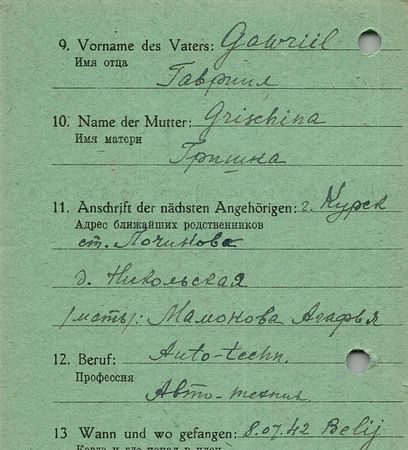 9. Vorname des Vaters: Gawriil
Имя отца
Гавриил
10. Name der Mutter: Grischina
Имя матери
Гришина
11. Anschrift der nächsten Angehörigen: г. Курск
Адрес ближайших родственников
ст. Лочиново
д. Никольская
(мать): Мамонова Агафья
12. Beruf: Auto-techn.
Профессия
Авто-техник
13 Wann und wo gefangen: 8.07.42 Belij
Когда и где попал в плен